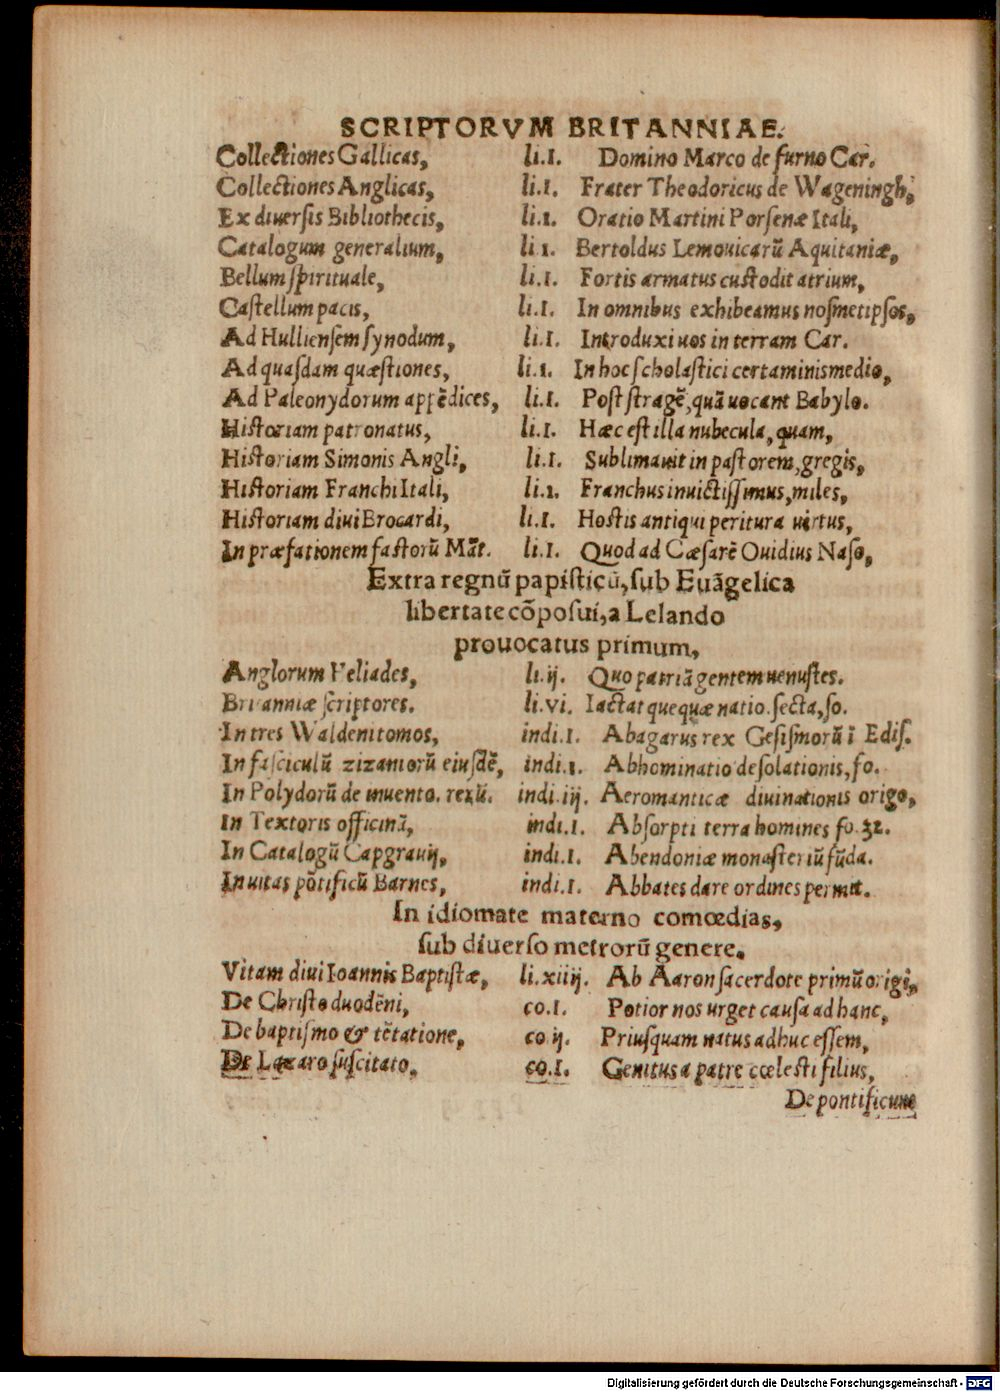 SCRIPTORVM BRITANNIAE.
Collectiones Gallicas, li.I. Domino Marco de furno Car.
Collectiones Anglicas, li.I. Frater Theodoricus de Wageningh,
Ex diuersis Bibliothecis, li.I. Oratio Martini Porsenæ Itali,
Catalogum generalium, li I. Bertoldus Lemouicarũ Aquitaniæ,
Bellum spirituale, li.I. Fortis armatus custodit atrium,
Castellum pacis, li.I. In omnibus exhibeamus nosmetipsos,
Ad Hulliensem synodum, li.I. Introduxi uos in terram Car.
Ad quasdam quæstiones, li.I. In hoc scholastici certaminis medio,
Ad Paleonydorum appẽdices, li.I. Post stragẽ, quã uocant Babylo.
Historiam patronatus, li.I. Hæc est illa nubecula, quam,
Historiam Simonis Angli, li.I. Sublimauit in pastorem, gregis,
Historiam Franchi Itali, li.I. Franchus inuictissimus, miles,
Historiam diui Brocardi, li.I. Hostis antiqui peritura uirtus,
In præfationem fastorũ Mãt. li.I. Quod ad Cæsarẽ Ouidius Naso,
Extra regnũ papisticũ, sub Euãgelica
libertate cõposui, a Lelando
prouocatus primum,
Anglorum Heliades, li.ij. Quo patriã gentem uenustes.
Britanniæ scriptores. li.vi. Iactat quequæ natio. secta, so.
In tres Waldeni tomos, indi.I. Abagarus rex Gesismorũ ĩ Edis.
In fasciculũ zizaniorũ eiusdẽ, indi.I. Abhominatio desolationis, fo.
In Polydorũ de inuento. rerũ. indi.iij. Aeromanticæ diuinationis origo,
In Textoris officinã, indi.I. Absorpti terra homines fo.32.
In Catalogũ Capgrauij, indi.I. Abendoniæ monasteriũ fũda.
In uitas põtificũ Barnes, indi.I. Abbates dare ordines permit.
In idiomate materno comœdias,
sub diuerso metrorũ genere.
Vitam diui Ioannis Baptistæ, li.xiiij. Ab Aaron sacerdote primũ origi,
De Christo duodẽni, co.I. Potior nos urget causa ad hanc,
De baptismo & tẽtatione, co ij. Priusquam natus adhuc essem,
De Lazaro suscitato, co.I. Genitus a patre cœlesti filius,
De pontificum
Digitalisierung gefördert durch die Deutsche Forschungsgemeinschaft - DFG